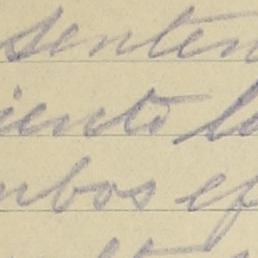 senten
iento la
mbos ef